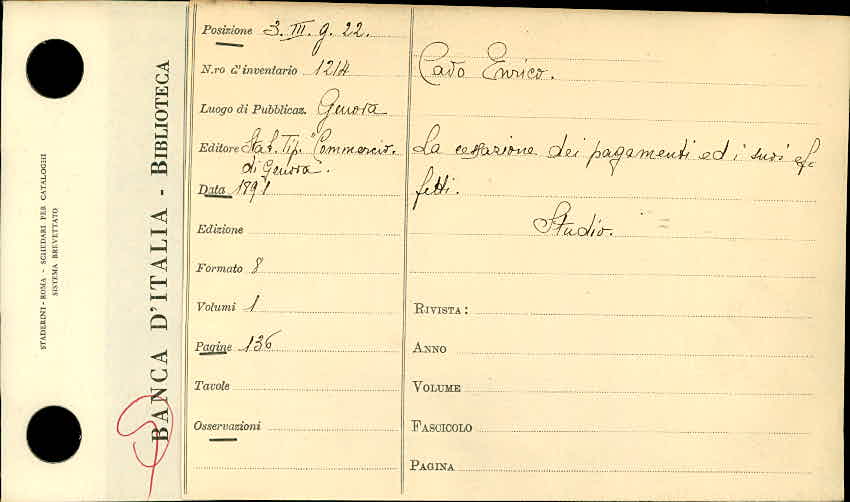 STADERINI - ROMA - SCHEDARI PER CATALOGHI
SISTEMA BREVETTATO
BANCA D'ITALIA - BIBLIOTECA
Posizione 3. III. g. 22.
N.ro d'inventario 1214
Luogo di Pubblicaz. Genova
Editore Stab. Tip. "Commercio.
di Genova".
Data 1891
Edizione
Formato 8
Volumi 1
Pagine 136
Tavole
Osservazioni
Cavo Enrico.
La cessazione dei pagamenti ed i suoi ef-
fetti.
Studio.
RIVISTA:
ANNO
VOLUME
FASCICOLO
PAGINA